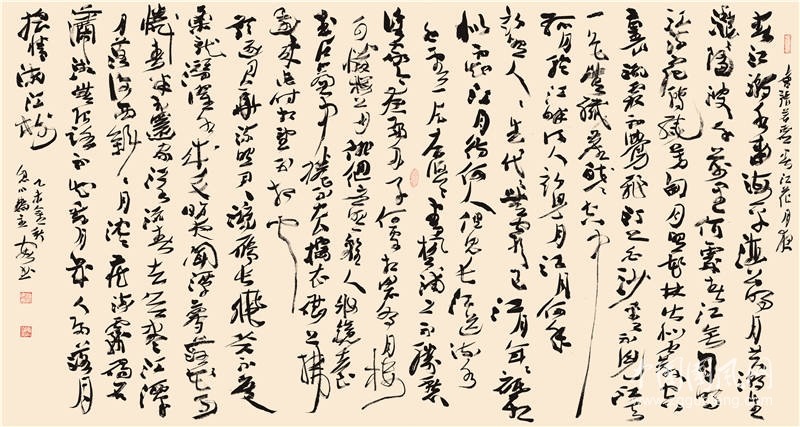 书张若虚春江花月夜
春江潮水连海平海上明月共潮生
滟滟随波千万里何处春江无月明
江流宛转绕芳甸月照花林皆似霰空
里流霜不觉飞汀上白沙看不见江天
一色无纤尘皎皎空中
孤月轮江畔何人初见月江月何年
初照人人生代代无穷已江月年年只相
似不知江月待何人但见长江送流水
白云一片去悠悠青枫浦上不胜愁
谁家今夜扁舟子何处相思明月楼
可怜楼上月徘徊应照离人妆镜台玉
户帘中卷不去捣衣砧上拂
还来此时相望不相闻
愿逐月华流照君鸿雁长飞光不度
鱼龙潜跃水成文昨夜闲潭梦落花可
怜春半不还家江水流春去欲尽江潭
落月复西斜斜月沉沉藏海雾碣石
潇湘无限路不知乘月几人归落月
摇情满江树
乙未金秋